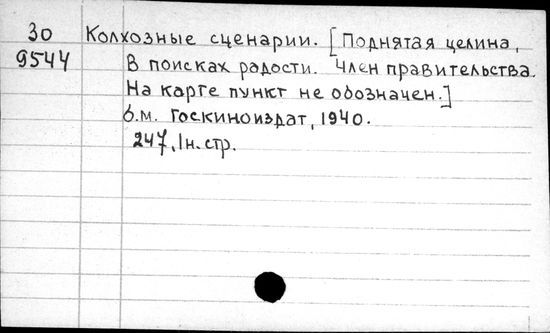 30 Колхозные сценарии. [Поднятая целина,
9544 В поисках радости. Член правительства.
На карте пункт не обозначен.]
б.м. Госкиноиздат, 1940.
247, 1н. стр.